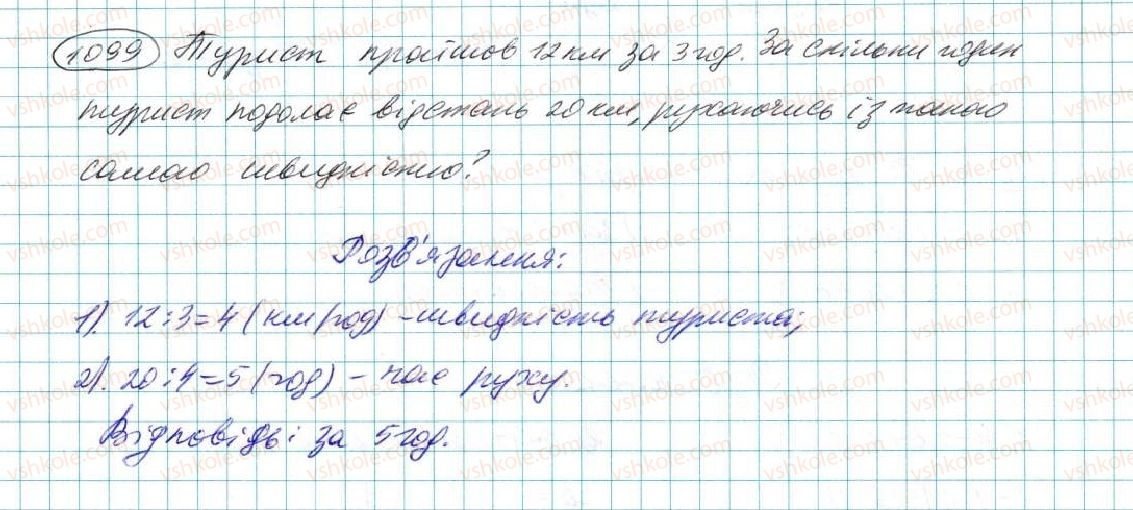 1099 Турист пройшов 12 км за 3 год. За скільки годин
турист подолає відстань 20 км, рухаючись із такою
самою швидкістю?
Розв'язання:
1). 12:3=4 (км/год) - швидкість туриста;
2). 20:4=5 (год) - час руху.
Відповідь: за 5 год.